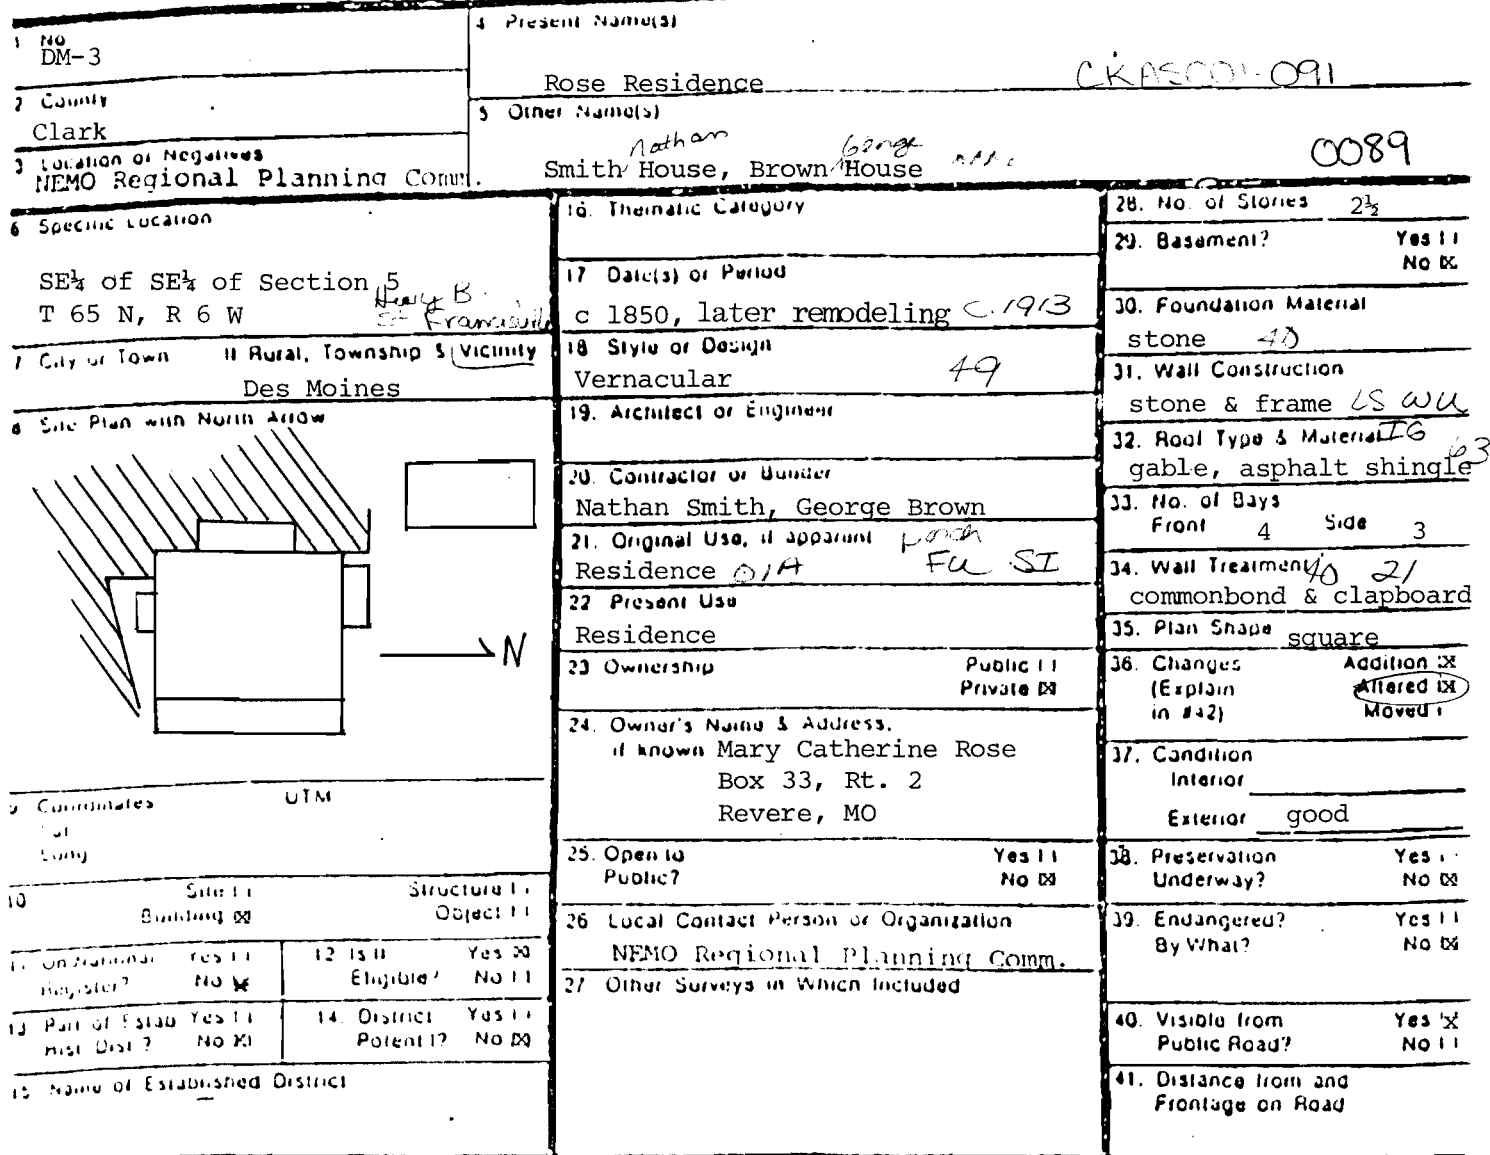 1 No
DM-3
4 Present Name(s)
Rose Residence
CKAS001-091
2 County
Clark
5 Other Name(s)
Nathan George
Smith House, Brown House
0089
3 Location of Negatives
NEMO Regional Planning Comm.
6 Specific Location
SE¼ of SE¼ of Section 5
T 65 N, R 6 W
7 City or Town If Rural, Township & Vicinity
Des Moines
8 Site Plan with North Arrow
N
9 Coordinates UTM
Lat
Long
10 Site Structure
Building Object
11 On National Yes
Register? No
12 Is It Yes
Eligible? No
13 Part of Estab Yes
Hist. Dist.? No
14. District Yes
Potent'l? No
15 Name of Established District
16. Thematic Category
17 Date(s) or Period
c 1850, later remodeling C. 1913
18 Style or Design
Vernacular 49
19. Architect or Engineer
20. Contractor or Builder
Nathan Smith, George Brown
21. Original Use, if apparent porch
Residence 01A FU SI
22 Present Use
Residence
23 Ownership Public
Private
24. Owner's Name & Address,
if known Mary Catherine Rose
Box 33, Rt. 2
Revere, MO
25. Open to Yes
Public? No
26 Local Contact Person or Organization
NEMO Regional Planning Comm.
27 Other Surveys in Which Included
28. No. of Stories 2½
29. Basement? Yes
No
30. Foundation Material
stone 40
31. Wall Construction
stone & frame LS WU
32. Roof Type & Material IG
gable, asphalt shingle 63
33. No. of Bays
Front 4 Side 3
34. Wall Treatment 40 21
commonbond & clapboard
35. Plan Shape square
36. Changes Addition
(Explain Altered
in #42) Moved
37. Condition
Interior
Exterior good
38. Preservation Yes
Underway? No
39. Endangered? Yes
By What? No
40. Visible from Yes
Public Road? No
41. Distance from and
Frontage on Road